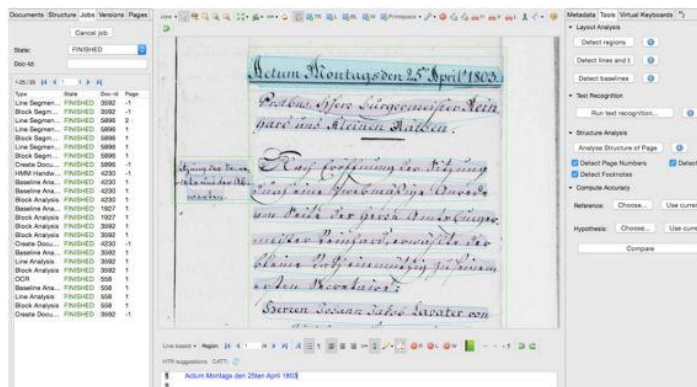 Documents Structure Jobs Versions Pages
Cancel job
State: FINISHED
Doc-Id:
1-25 / 25 1
Type State Doc-Id Page
Line Segmen... FINISHED 3592 -1
Block Segm... FINISHED 3592 -1
Line Segmen... FINISHED 5896 2
Line Segmen... FINISHED 5896 1
Block Segm... FINISHED 5896 1
Line Segmen... FINISHED 5896 1
Block Segm... FINISHED 5896 1
Create Docu... FINISHED 5896 -1
HMM Handw... FINISHED 4230 -1
Baseline Ana... FINISHED 4230 1
Baseline Ana... FINISHED 4230 1
Block Analysis FINISHED 4230 1
Baseline Ana... FINISHED 1927 1
Block Analysis FINISHED 1927 1
Block Analysis FINISHED 3592 1
Create Docu... FINISHED 4230 -1
Line Analysis FINISHED 3592 1
Block Analysis FINISHED 3592 1
OCR FINISHED 558 1
Baseline Ana... FINISHED 558 1
Line Analysis FINISHED 558 1
Block Analysis FINISHED 558 1
Create Docu... FINISHED 3592 -1
Actum Montags den 25 April 1803.
Herr Bürgermeister Rein
hard und Kleinen Räthen.
Nach Eröffnung der Sitzung
durch eine zweckmäßige Anrede
von Seite der Herrn Amtsburger
meister Reinhard, erwählte der
kleine Rath einmüthig zu seinem
ersten Secretaire:
Herren Jakob Lavater von
Line based Region: 1
HTR suggestions CATTI
1 Actum Montags den 25ten April 1803
Metadata Tools Virtual Keyboards
Layout Analysis
Detect regions
Detect lines and b
Detect baselines
Text Recognition
Run text recognition...
Structure Analysis
Analyse Structure of Page
Detect Page Numbers Detect
Detect Footnotes
Compute Accuracy
Reference: Choose... Use curre
Hypothesis: Choose... Use curre
Compare